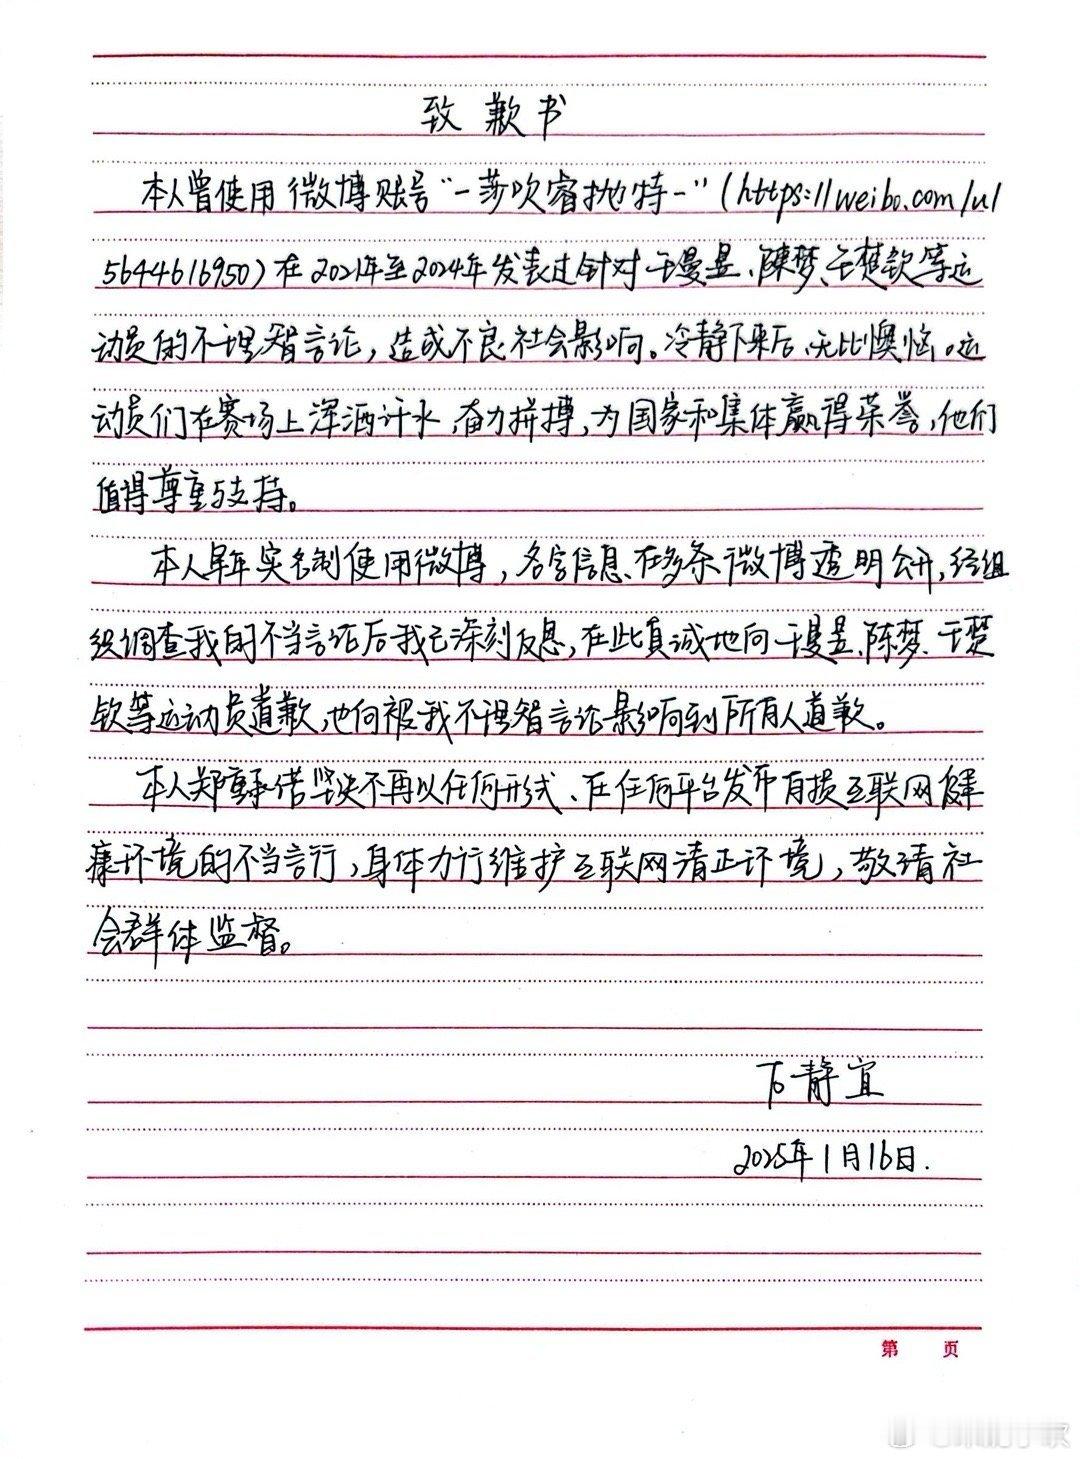 致歉书
本人曾使用微博账号“-莎吹睿抛特-”(https://weibo.com/u/
5644616950)在2021年至2024年发表过针对王曼昱、陳梦、王楚钦等运
动员的不理智言论，造成不良社会影响。冷静下来后，无比懊恼。运
动员们在赛场上浑洒汗水，奋力拼搏，为国家和集体赢得荣誉，他们
值得尊重与支持。
本人早年实名制使用微博，名字信息、在多条微博透明公开，经组
织调查我的不当言论后我已深刻反思，在此真诚地向王曼昱、陈梦、王楚
钦等运动员道歉，也向被我不理智言论影响到所有人道歉。
本人郑重承诺坚决不再以任何形式、在任何平台发布有损互联网健
康环境的不当言行，身体力行维护互联网清正环境，敬请社
会群体监督。
静宜
2025年1月16日.
第 页